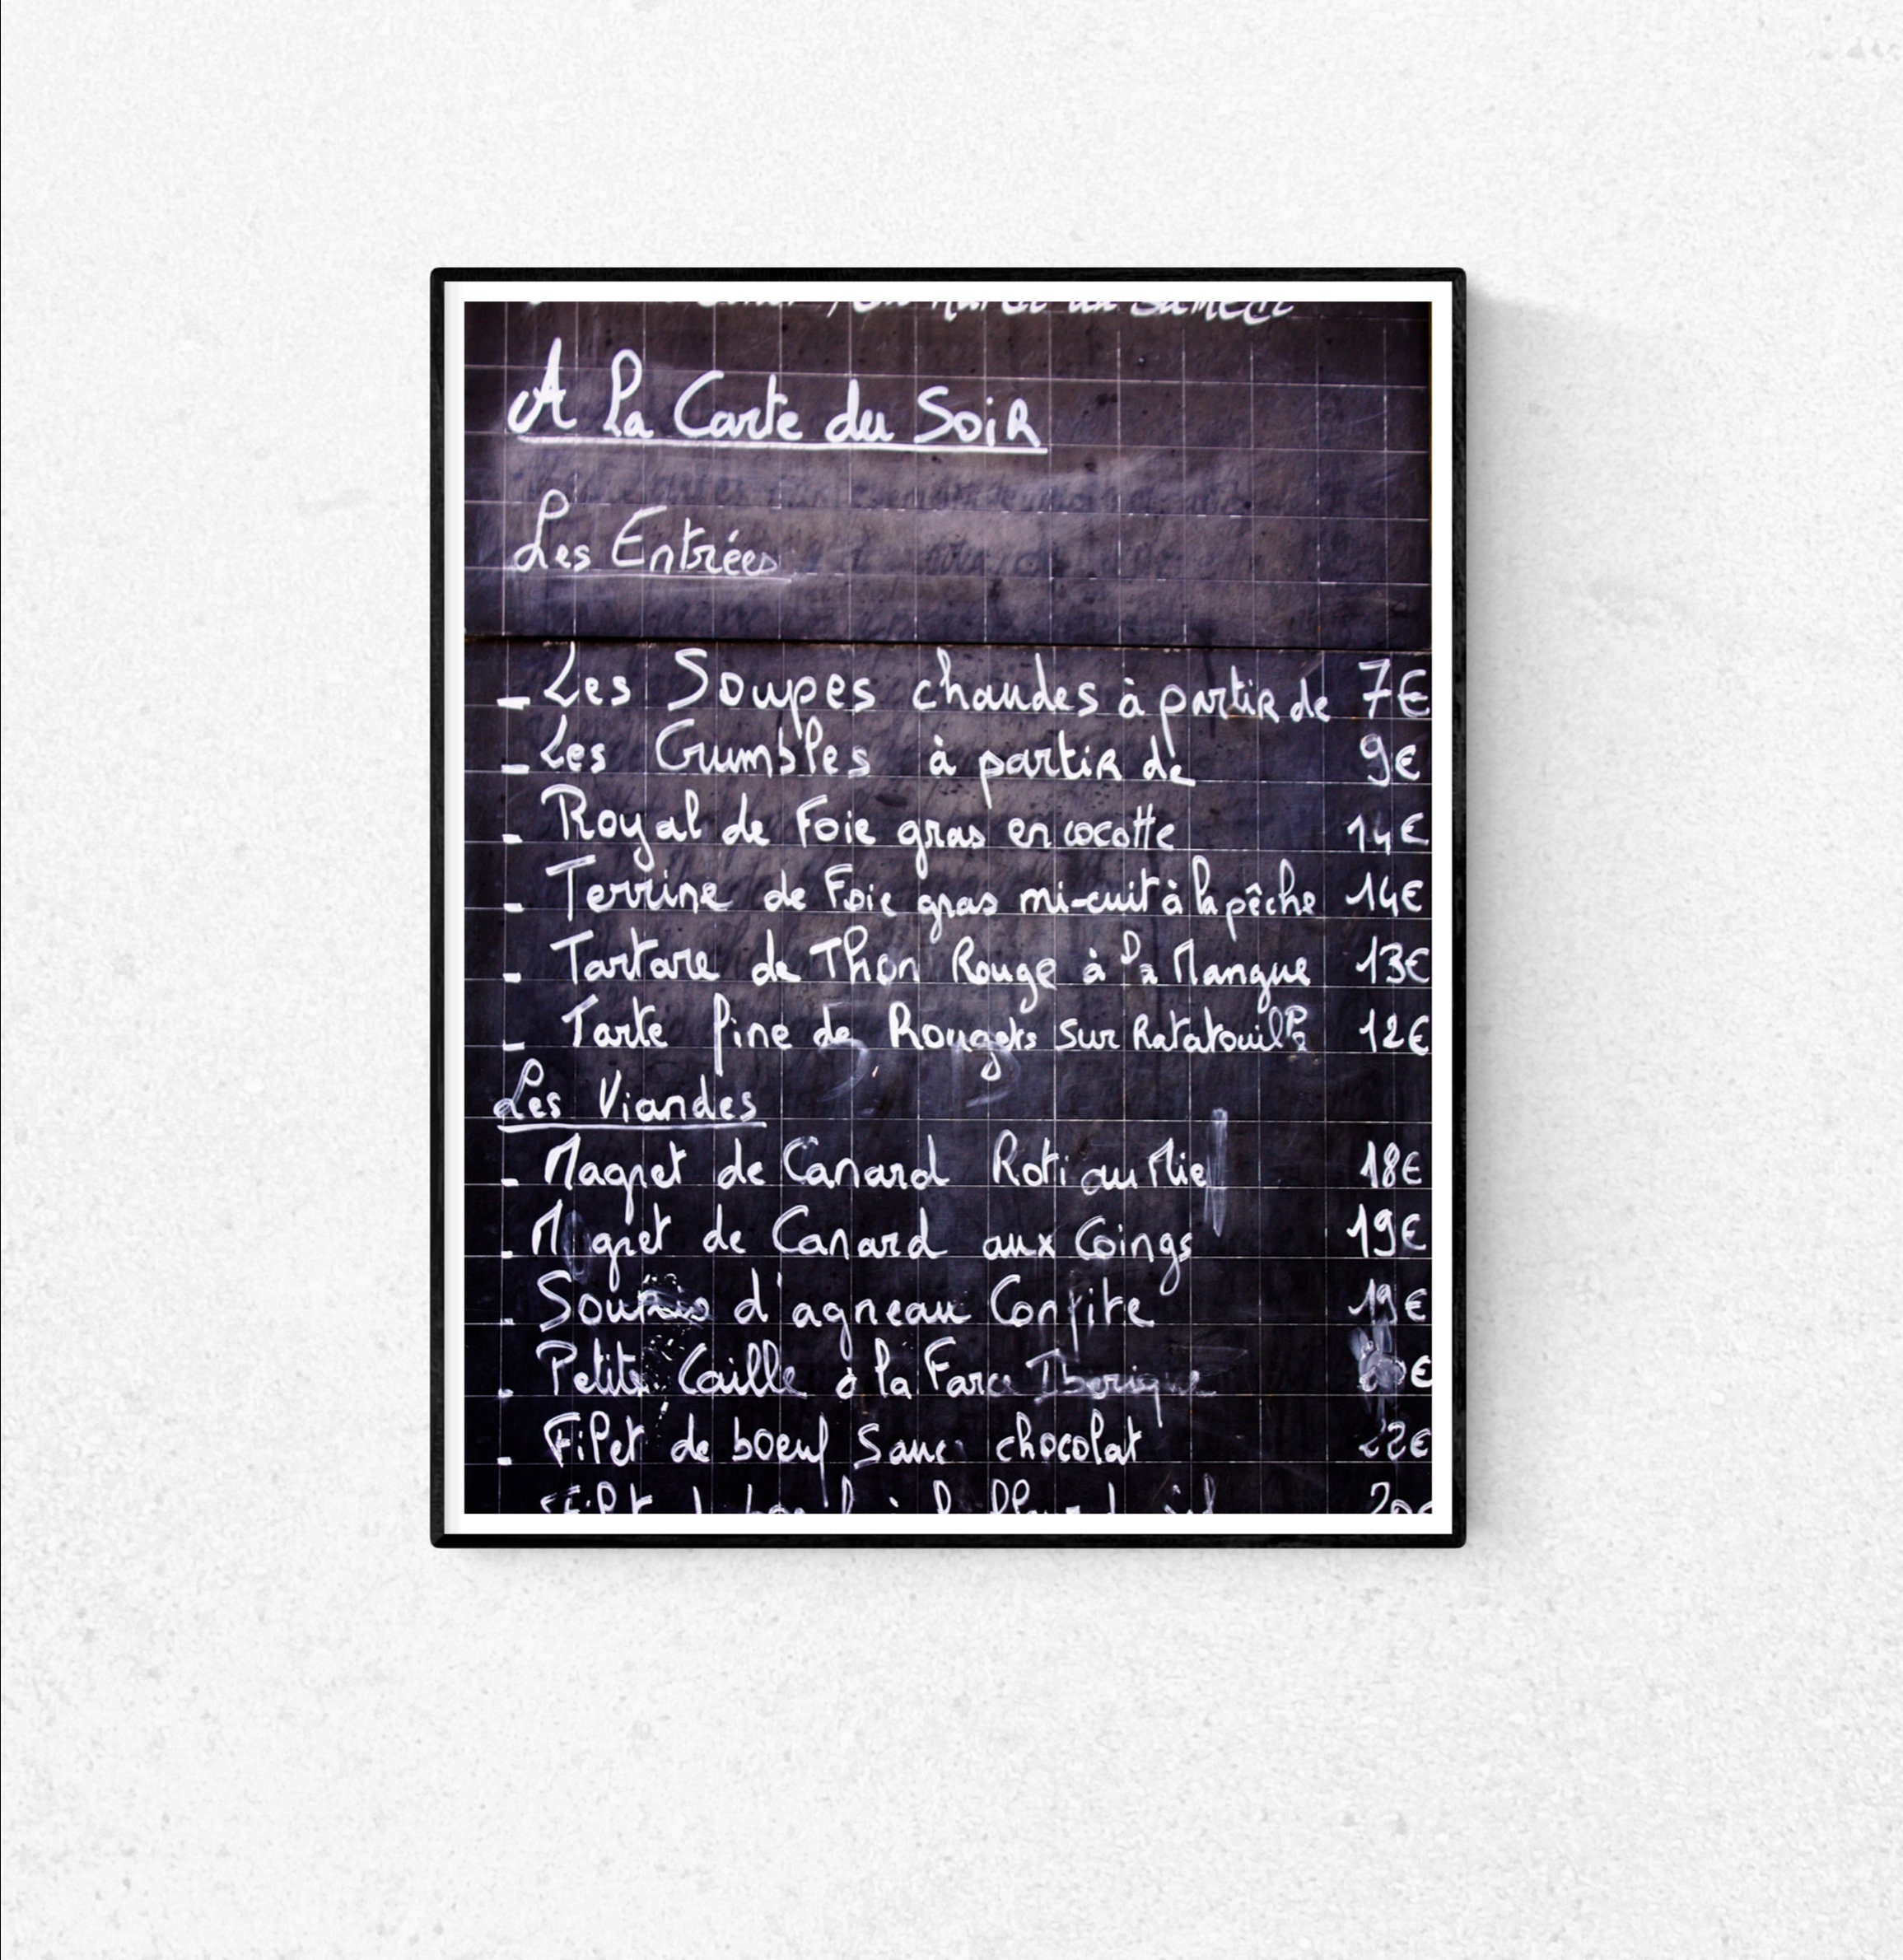 du Samedi
A la Carte du Soir
Les Entrées
- Les Soupes chaudes à partir de 7€
- Les Crumbles à partir de 9€
- Royal de Foie gras en cocotte 14€
- Terrine de Foie gras mi-cuit à la pêche 14€
- Tartare de Thon Rouge à la Mangue 13€
- Tarte fine de Rougets sur Ratatouille 12€
Les Viandes
- Magret de Canard Roti au Miel 18€
- Magret de Canard aux Coings 19€
- Souris d'agneau Confite 19€
- Petite Caille à la Farce Iberique €
- Filet de boeuf sauce chocolat 22€